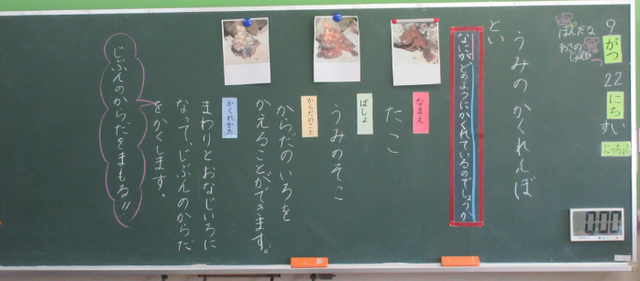 9
がつ
22
にち
すい
にっちょく
うみのかくれんぼ
とい
なにが、どのようにかくれているのでしょうか
なまえ
たこ
ばしょ
うみのそこ
からだのこと
からだのいろを
かえることができます。
かくれかた
まわりとおなじいろに
なって、じぶんのからだ
をかくします。
じぶんのからだをまもる!!
0:00